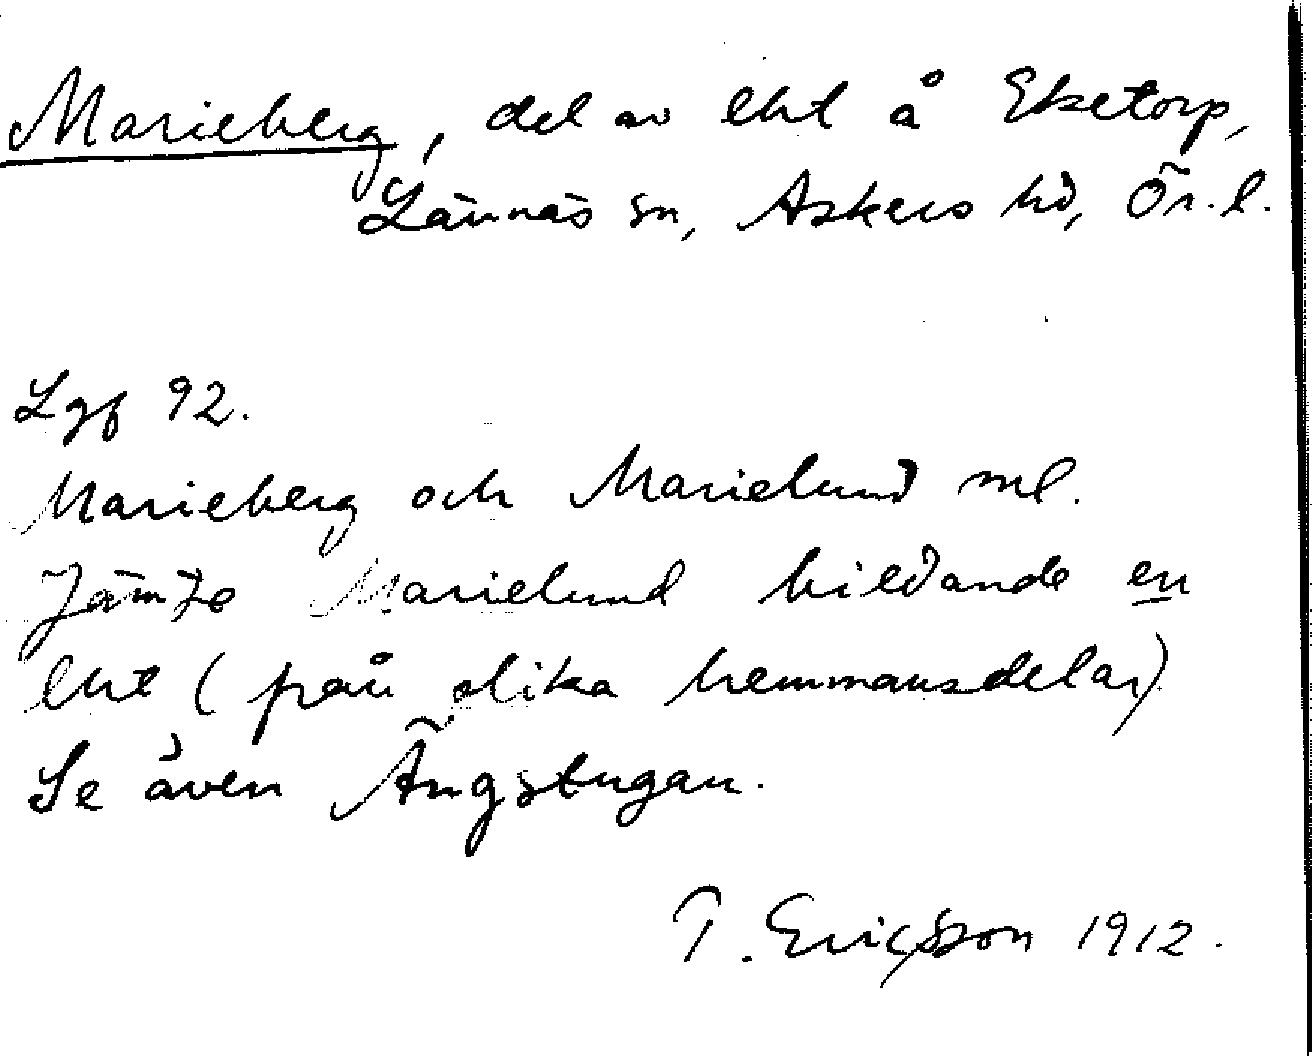 Marieberg, del av lht å Eketorp,
Lännäs sn, Askers hd, Ör. l.
Lgf 92.
Marieberg och Marielund ml.
Jämte Marielund bildande en
lht (från olika hemmansdelar)
Se även Ängstugan.
T. Ericsson 1912.